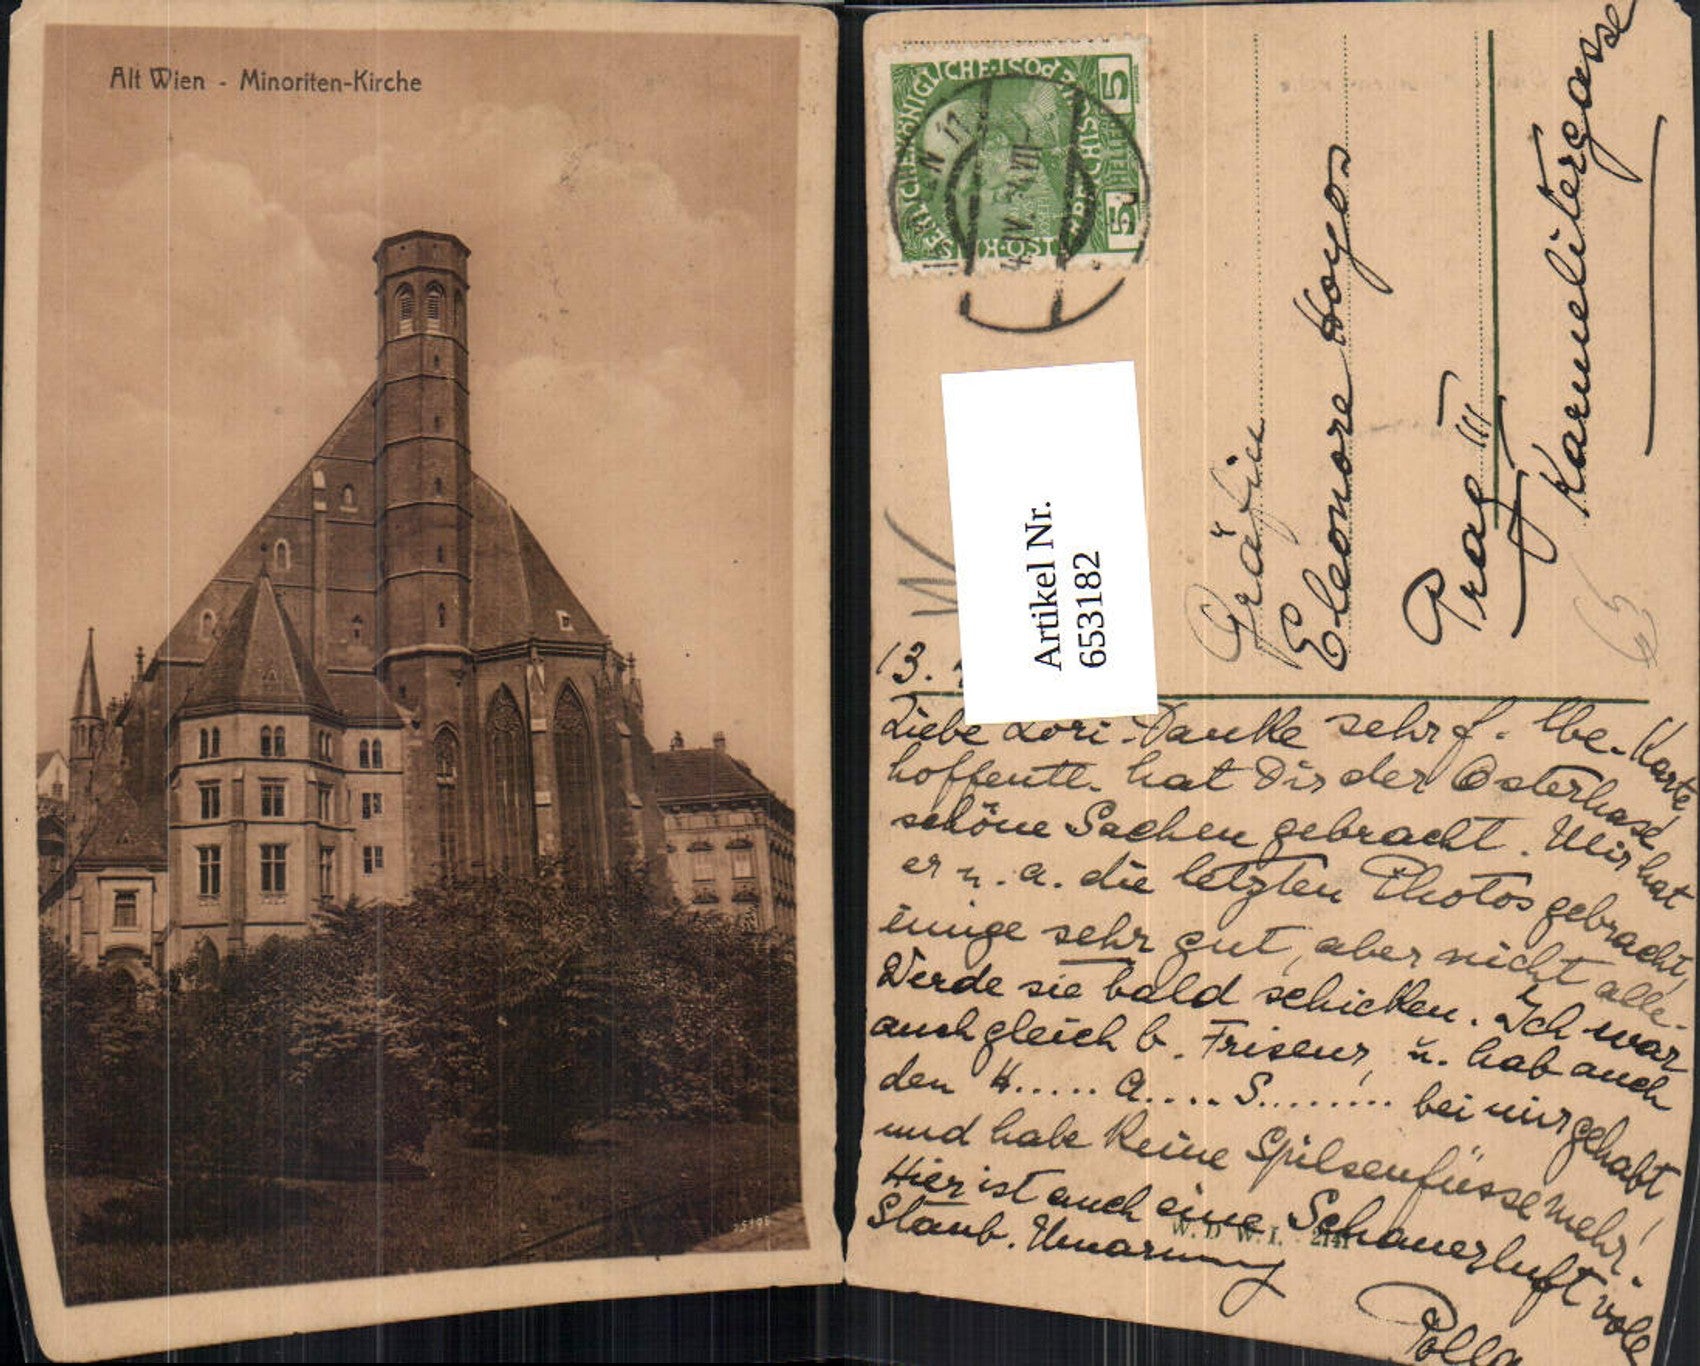 Alt Wien - Minoriten-Kirche
5
5
Artikel Nr.
653182
Gräfin
Eleonore Hoyos
Prag III
Karmelitergasse
13.
Liebe Lori. Danke sehr f. lbe. Karte,
hoffentl. hat Dir der Osterhase
schöne Sachen gebracht. Mir hat
er u. a. die letzten Photos gebracht,
einige sehr gut, aber nicht alle.
Werde sie bald schicken. Ich war
auch gleich b. Friseur, u. hab auch
den H..... A.... S........ bei mir gehabt
und habe keine mehr!
Hier ist auch eine Schauerluft voll
Staub. Umarmung
W. D. W. I. 2141